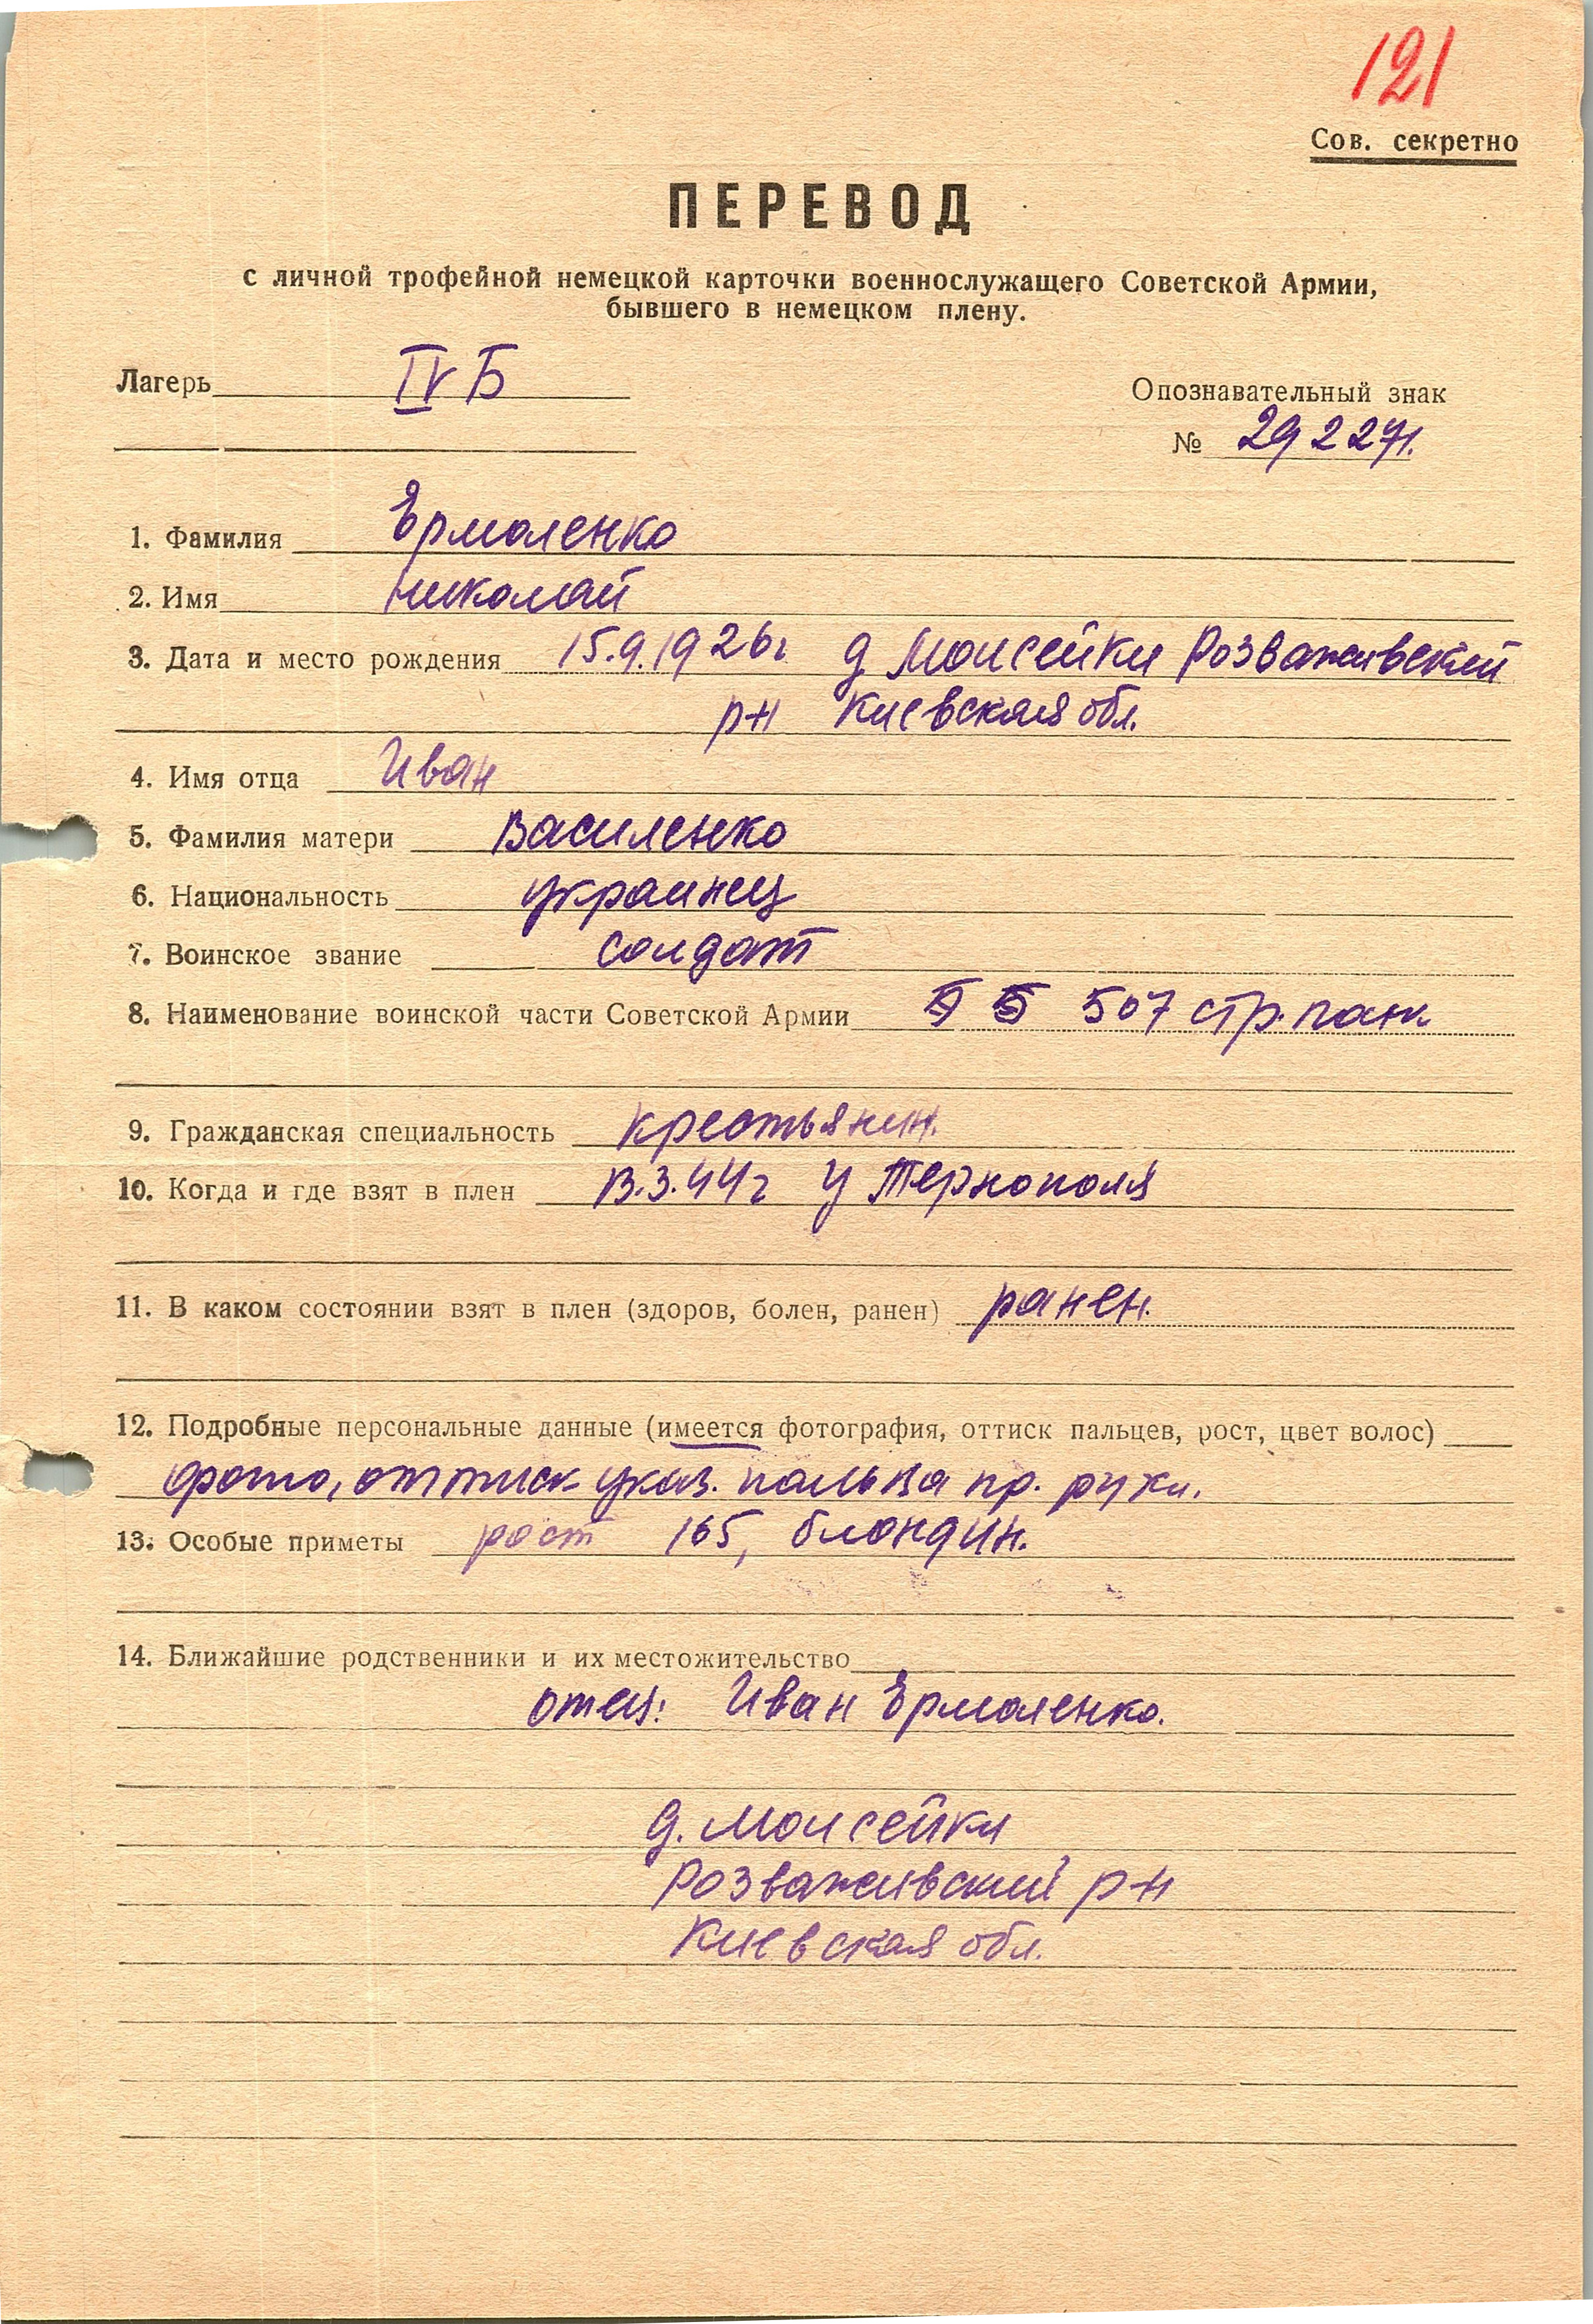 121
Сов. секретно
ПЕРЕВОД
с личной трофейной немецкой карточки военнослужащего Советской Армии,
бывшего в немецком плену.
Лагерь IV Б
Опознавательный знак
№ 292271.
1. Фамилия Ермоленко
2. Имя Николай
3. Дата и место рождения 15.9.1926г д Моисейки Розважевский
р-н Киевская обл.
4. Имя отца Иван
5. Фамилия матери Василенко
6. Национальность украинец
7. Воинское звание солдат
8. Наименование воинской части Советской Армии 507 стр.
9. Гражданская специальность крестьянин.
10. Когда и где взят в плен 13.3.44г у Тернополя
11. В каком состоянии взят в плен (здоров, болен, ранен) ранен.
12. Подробные персональные данные (имеется фотография, оттиск пальцев, рост, цвет волос)
фото, оттиск указ. пальца пр. руки.
13. Особые приметы рост 165, блондин.
14. Ближайшие родственники и их местожительство
отец: Иван Ермоленко.
д. Моисейки
Розважевский р-н
Киевская обл.